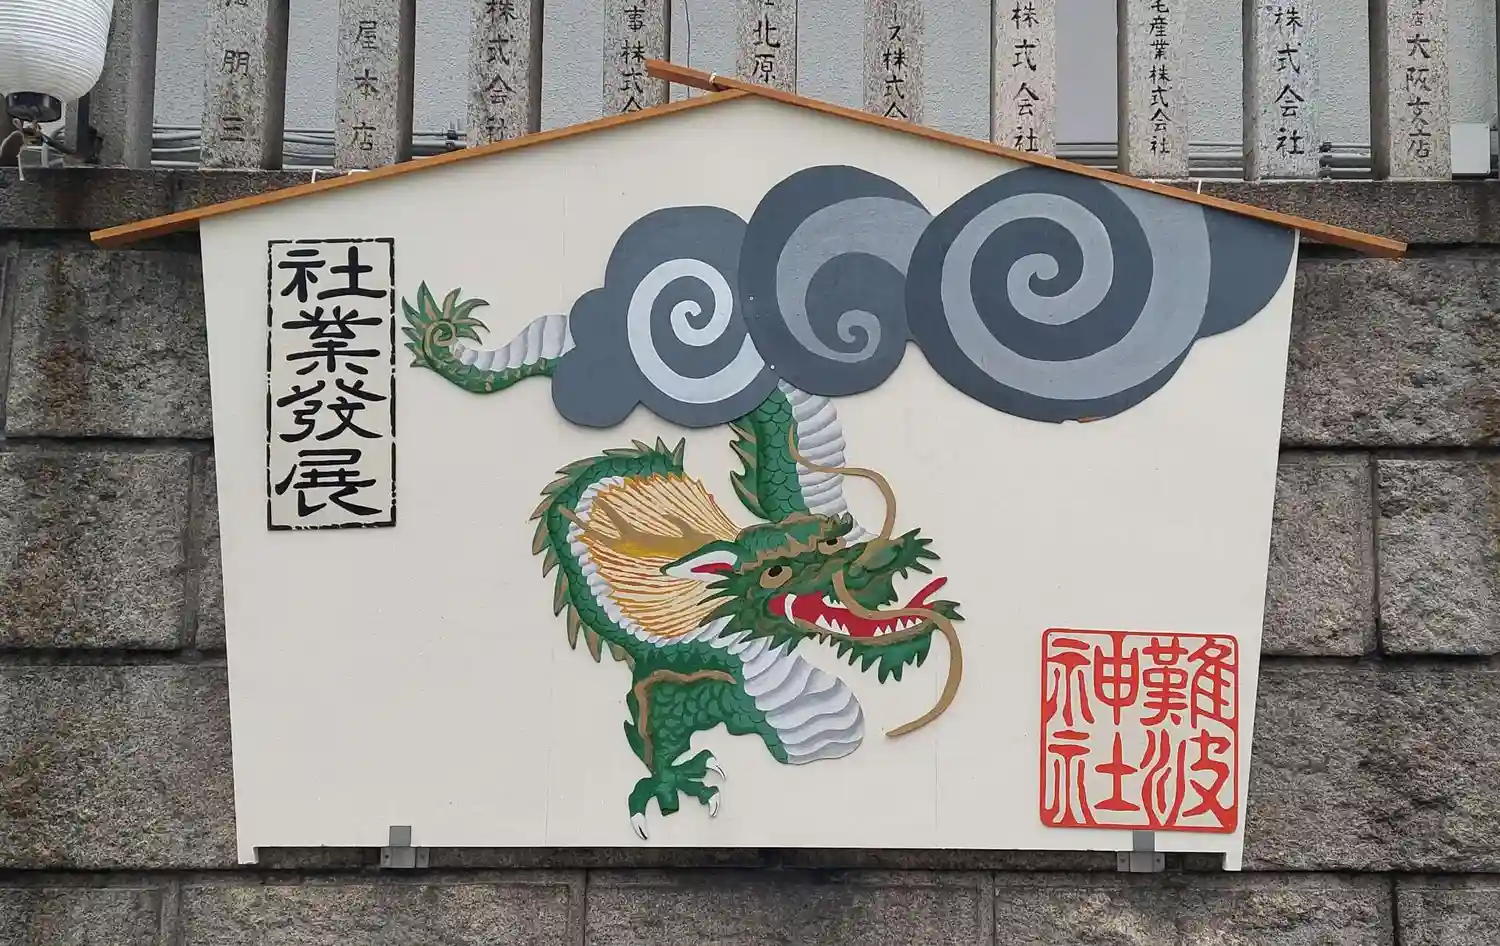 朋三
屋本店
株式会社
事株式会
北原
ース株式会
株式会社
毛産業株式会社
株式会社
店大阪支店
社業發展
難波
神社